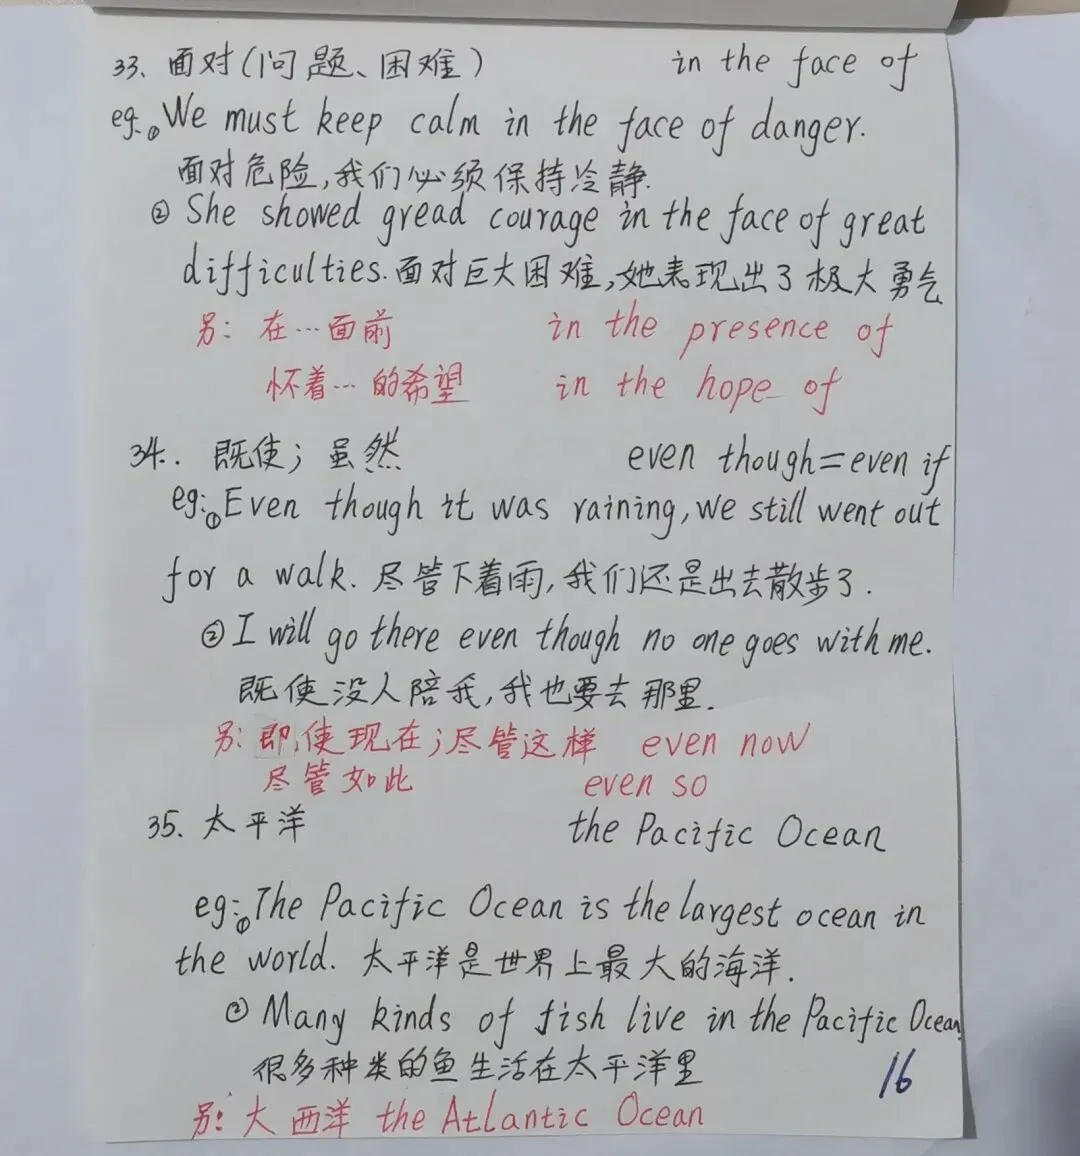 33、面对(问题、困难) in the face of
eg:① We must keep calm in the face of danger.
面对危险,我们必须保持冷静.
② She showed gread courage in the face of great
difficulties.面对巨大困难,她表现出了极大勇气
另: 在…面前 in the presence of
怀着…的希望 in the hope of
34. 既使; 虽然 even though=even if
eg:① Even though it was raining, we still went out
for a walk. 尽管下着雨,我们还是出去散步了.
② I will go there even though no one goes with me.
既使没人陪我,我也要去那里.
另: 即使现在;尽管这样 even now
尽管如此 even so
35、太平洋 the Pacific Ocean
eg:① The Pacific Ocean is the largest ocean in
the world. 太平洋是世界上最大的海洋.
② Many kinds of fish live in the Pacific Ocean
很多种类的鱼生活在太平洋里
16
另: 大西洋 the Atlantic Ocean